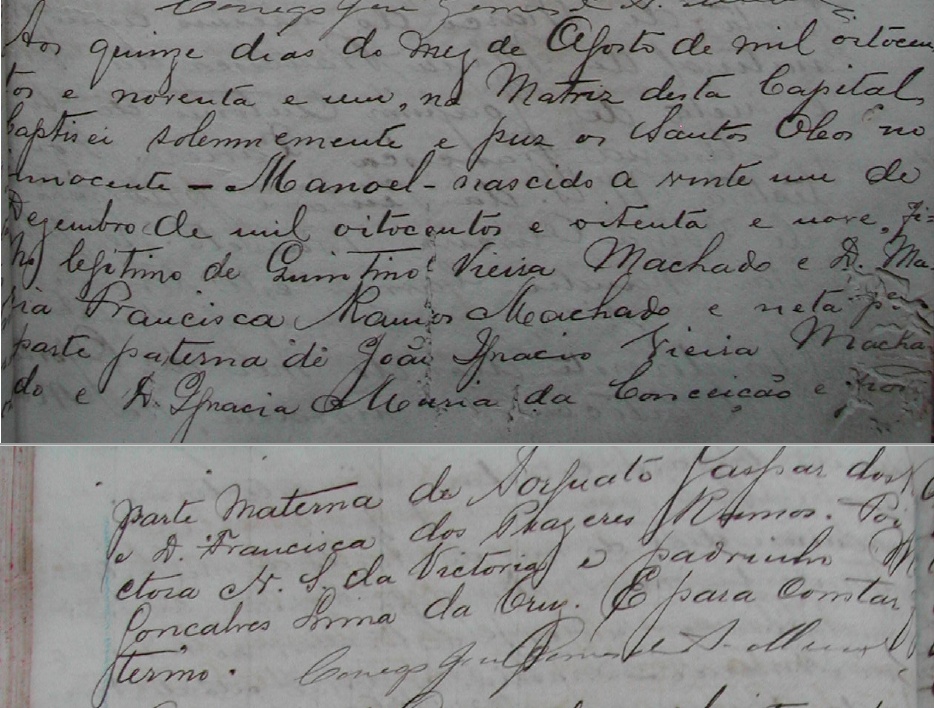 Conego José Gomes d' A.
Aos quinze dias do mez de Agosto de mil oitocen
tos e noventa e um, na Matriz desta Capital,
baptisei solemnemente e puz os Santos Oleos no
innocente - Manoel - nascido a vinte um de
Dezembro de mil oitocentos e oitenta e nove, fi-
lho legitimo de Quintino Vieira Machado e D. Ma-
ria Francisca Ramos Machado e neto por
parte paterna de João Ignacio Vieira Macha
do e D. Ignacia Maria da Conceição e por
parte materna de Torquato Gaspar dos
e D. Francisca dos Prazeres Ramos. Foi
ctora N. S. da Victoria e padrinho M
Goncalves Lima da Cruz. E para Constar
termo. Conego José Gomes d' A.